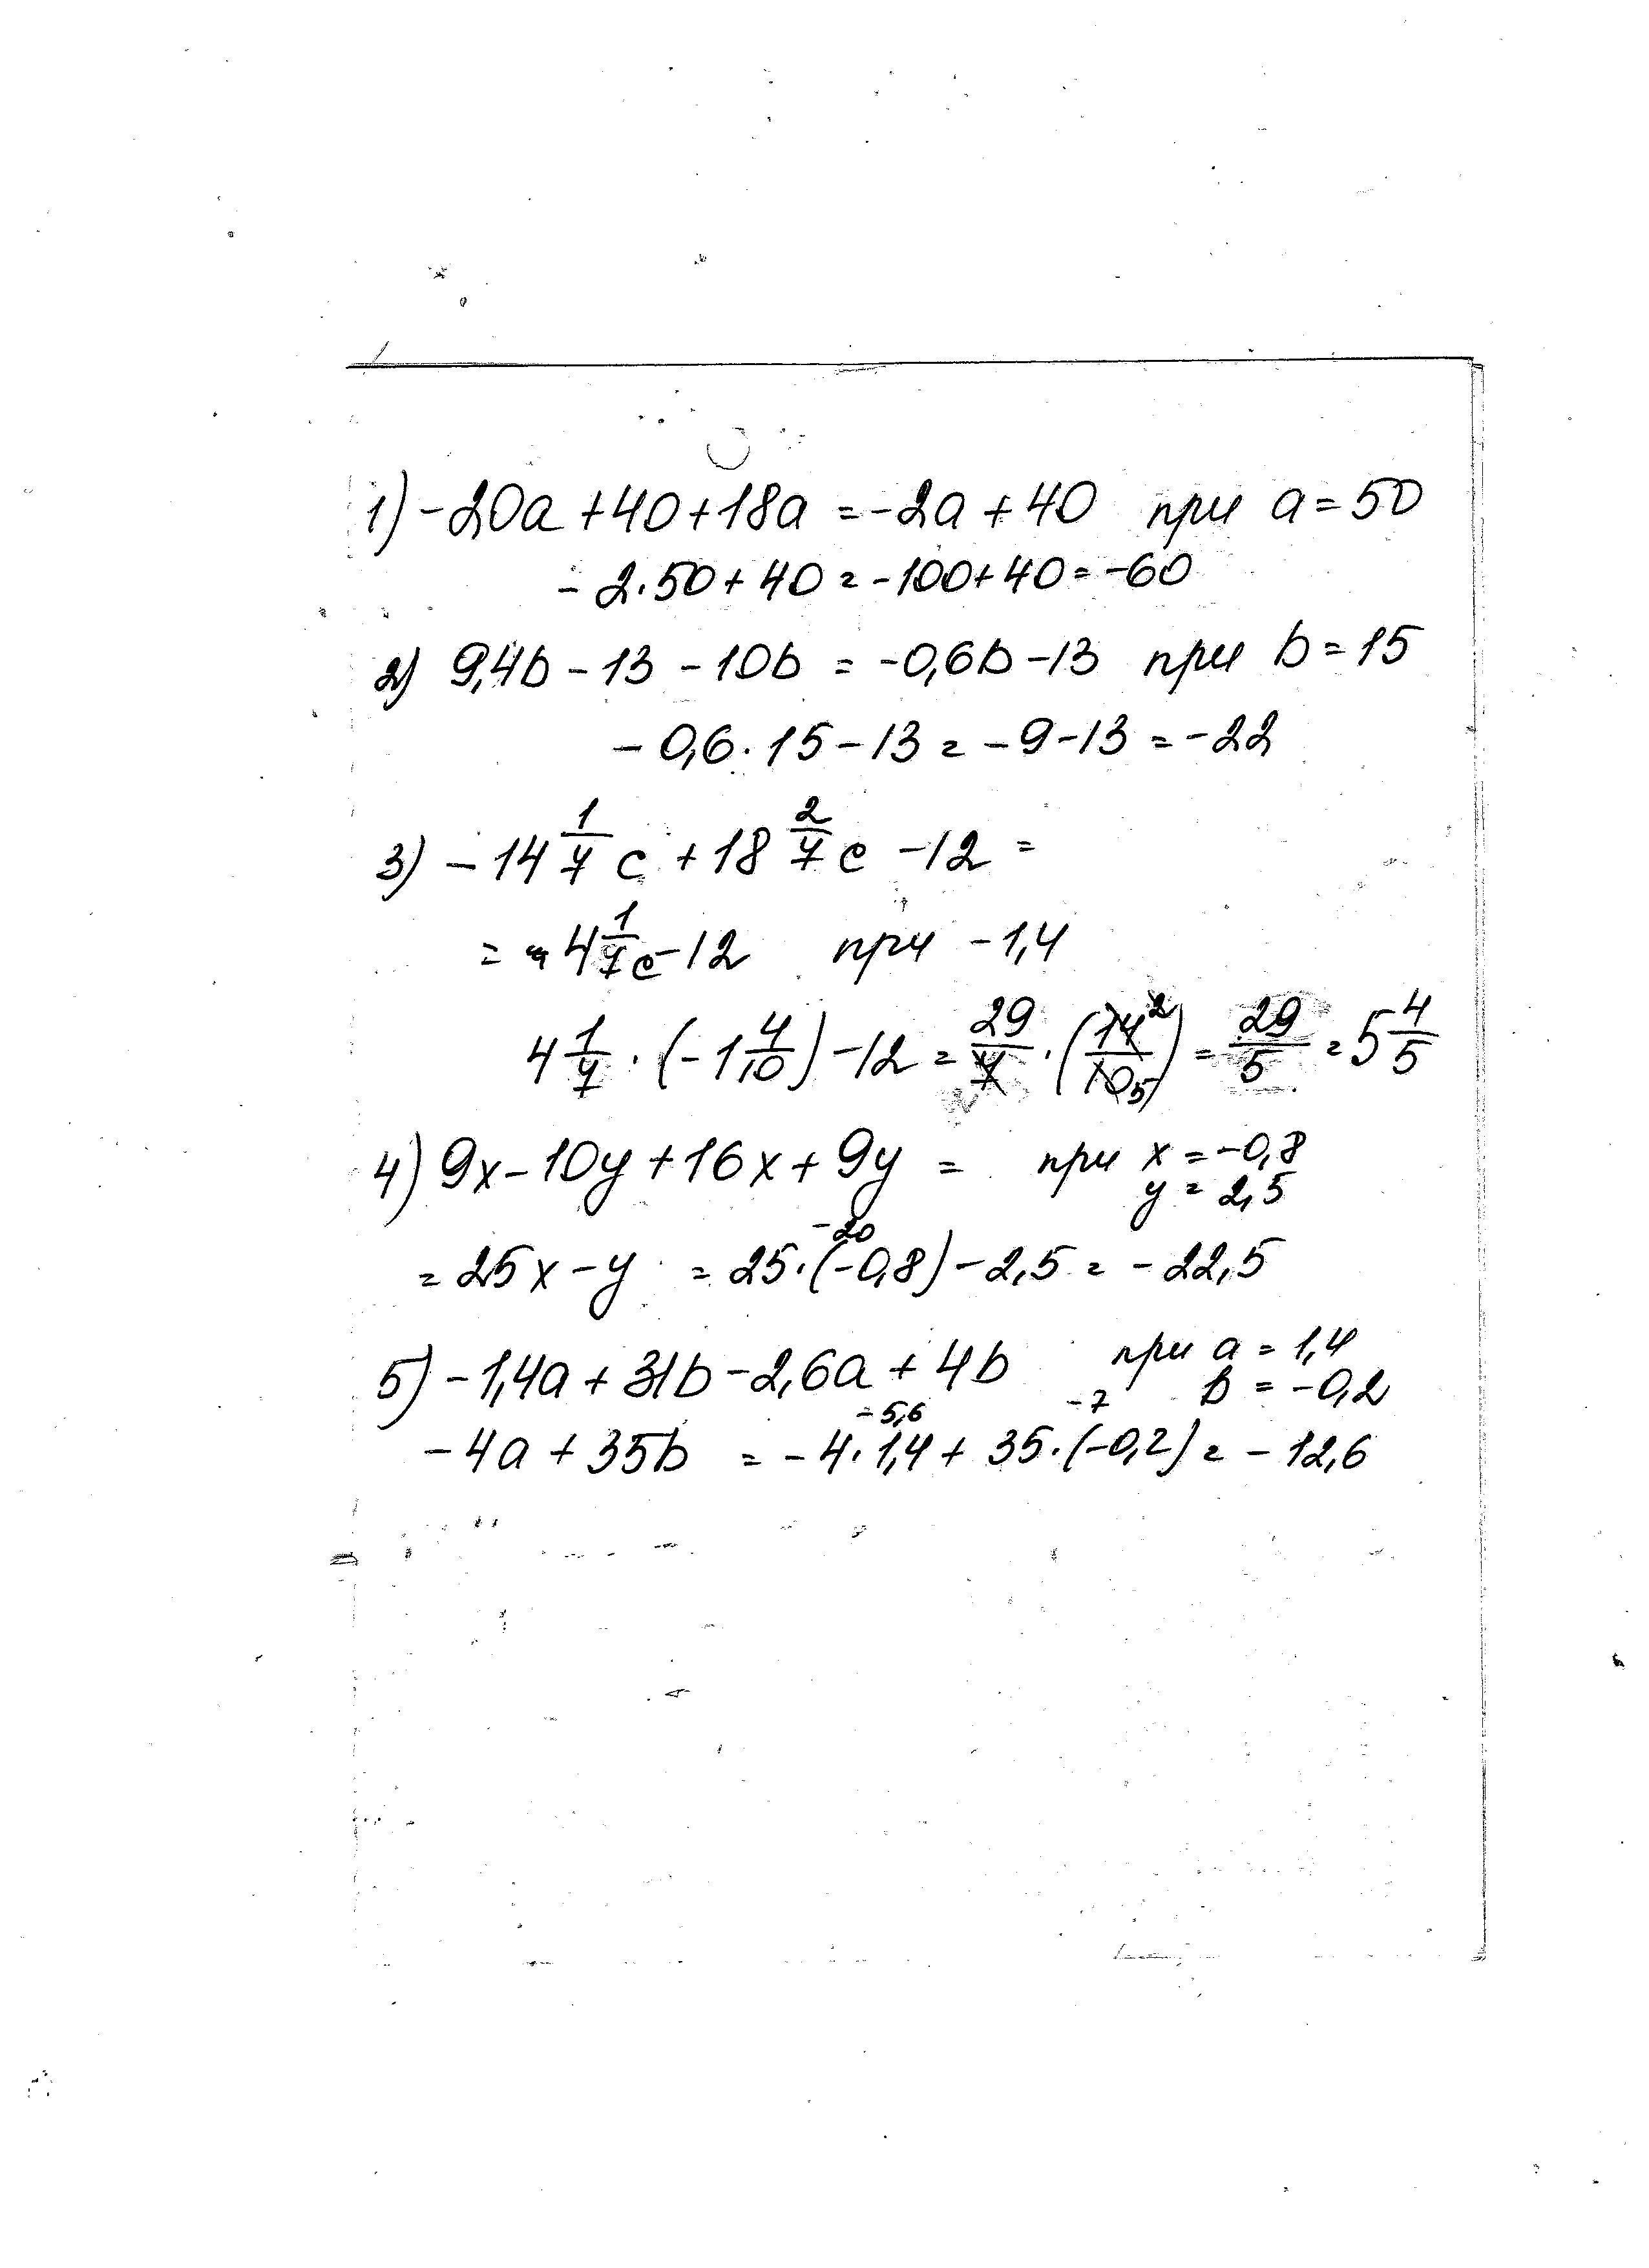 1) -20a + 40 + 18a = -2a + 40 при a = 50
- 2·50 + 40 = -100 + 40 = -60
2) 9,4b - 13 - 10b = -0,6b - 13 при b = 15
- 0,6·15 - 13 = -9 - 13 = -22
3) - 14 1/7 c + 18 2/7 c - 12 =
= 4 1/7 c - 12 при -1,4
4 1/7 · (-1 4/10) - 12 = 29/7 · (14 2/10 5) = 29/5 = 5 4/5
4) 9x - 10y + 16x + 9y = при x = -0,8
y = 2,5
-20
= 25x - y = 25·(-0,8) - 2,5 = -22,5
5) -1,4a + 31b - 2,6a + 4b при a = 1,4
b = -0,2
-5,6 -7
-4a + 35b = -4·1,4 + 35·(-0,2) = -12,6